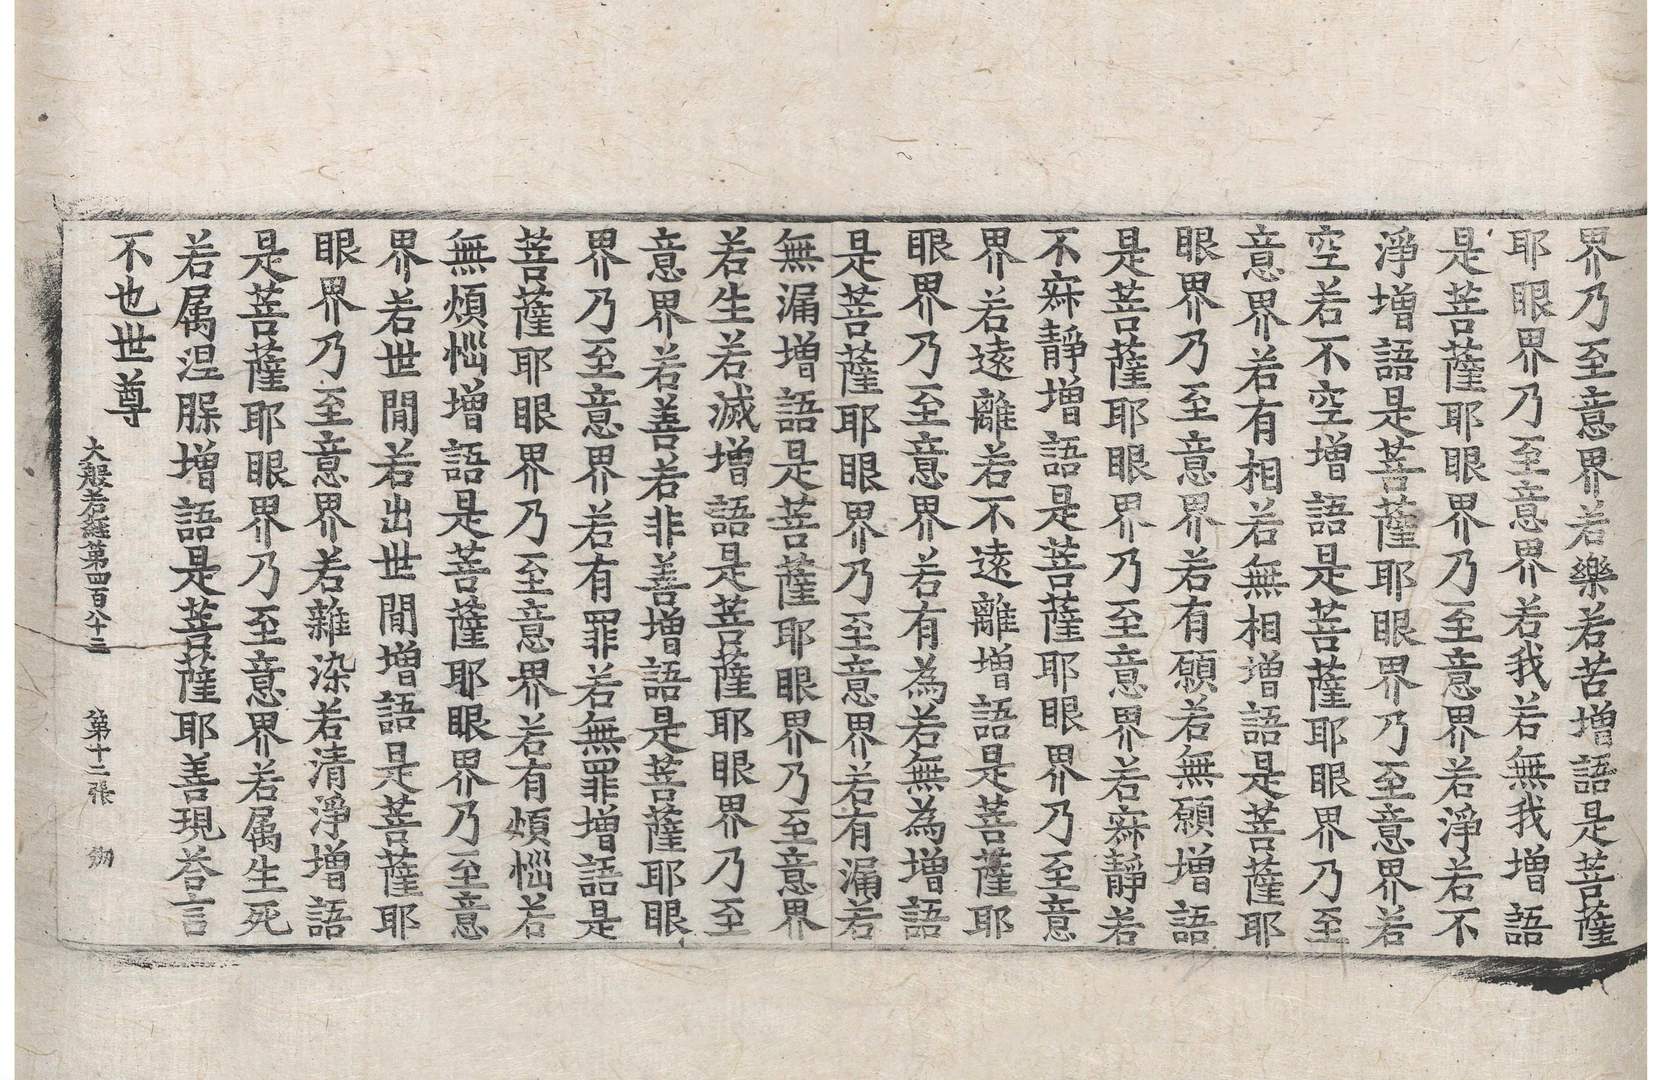 界乃至意界若樂若苦增語是菩薩
耶眼界乃至意界若我若無我增語
是菩薩耶眼界乃至意界若淨若不
淨增語是菩薩耶眼界乃至意界若
空若不空增語是菩薩耶眼界乃至
意界若有相若無相增語是菩薩耶
眼界乃至意界若有願若無願增語
是菩薩耶眼界乃至意界若寂靜若
不寂靜增語是菩薩耶眼界乃至意
界若遠離若不遠離增語是菩薩耶
眼界乃至意界若有為若無為增語
是菩薩耶眼界乃至意界若有漏若
無漏增語是菩薩耶眼界乃至意界
若生若滅增語是菩薩耶眼界乃至
意界若善若非善增語是菩薩耶眼
界乃至意界若有罪若無罪增語是
菩薩耶眼界乃至意界若有煩惱若
無煩惱增語是菩薩耶眼界乃至意
界若世閒若出世閒增語是菩薩耶
眼界乃至意界若雜染若清淨增語
是菩薩耶眼界乃至意界若属生死
若属涅槃增語是菩薩耶善現荅言
不也世尊
大般若經第四百八十三 第十二張